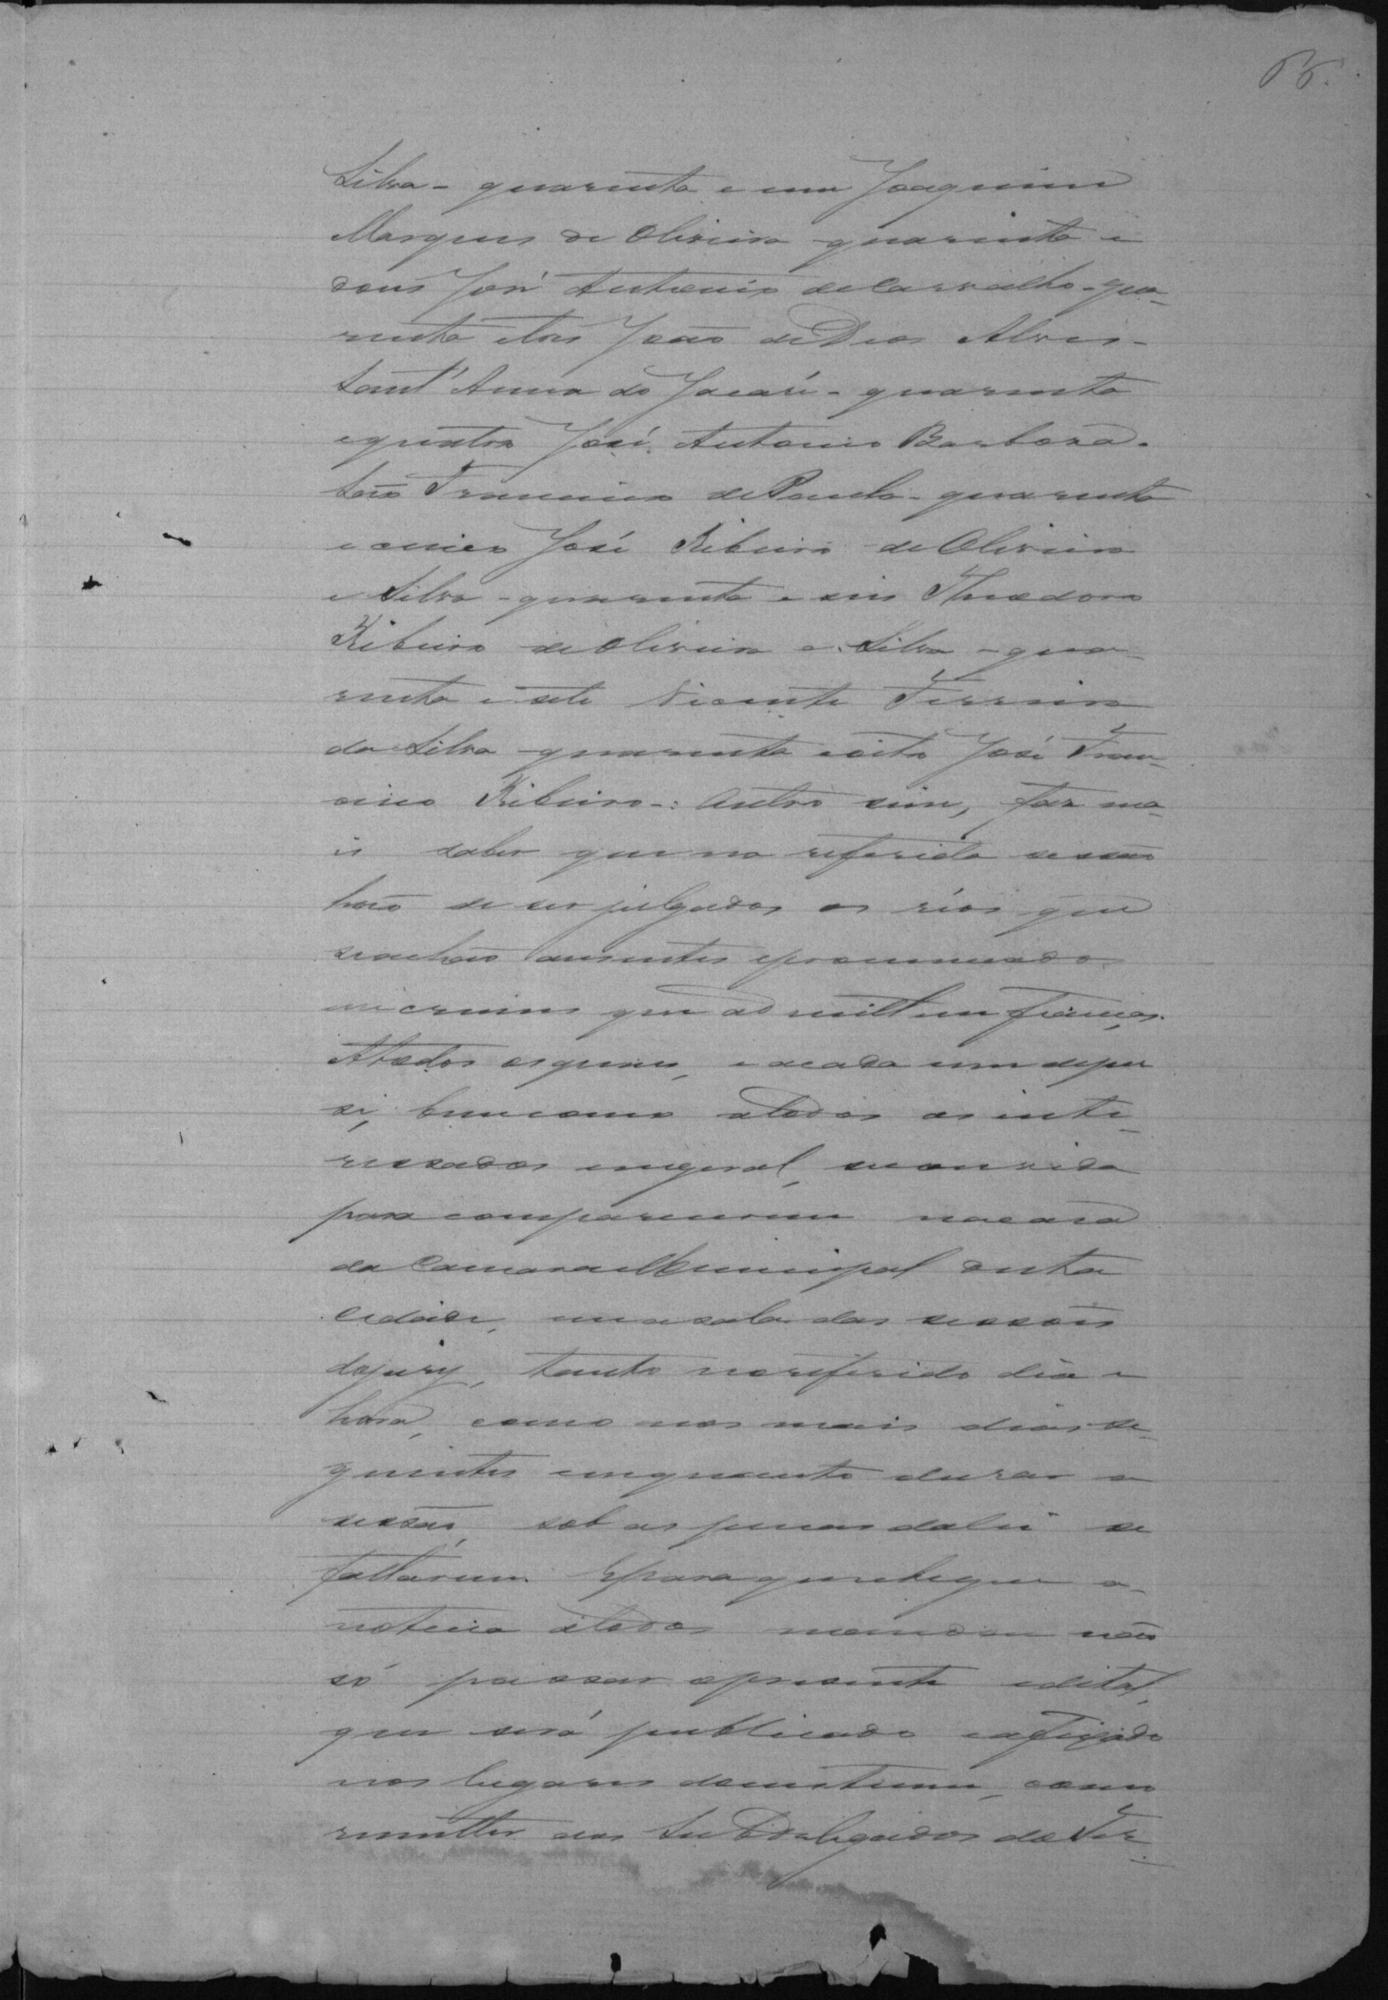 65.
Silva - quarenta e um Joaquim
Marques de Oliveira quarenta e
dous José Antonio de Carvalho - qua-
renta e tres João de Deos Alves -
Sant'Anna do Jacaré - quarenta
e quatro José Antonio Barbosa -
São Francisco de Paula - quarenta
e cinco José Ribeiro de Oliveira
e Silva - quarenta e seis Theodoro
Ribeiro de Oliveira e Silva - qua-
renta e sete Vicente Ferreira
da Silva quarenta e oito José Fran-
cisco Ribeiro -: Outro sim, faz ma-
is saber que na referida sessão
hão de ser julgados os réos que
se achão ausentes e pronunciados
em crimes que admittem fiança.
A todos os quaes, e a cada um de per
si, bem como a todos os inte-
ressados em geral, se convida
para comparecerem na casa
da Camara Municipal desta
Cidade, em a sala das sessões
do jury, tanto no referido dia e
hora, como nos mais dias se-
guintes emquanto durar a
sessão, sob as penas da lei se
faltarem. E para que chegue a
noticia a todos mandou não
só passar o presente edital,
que será publicado e affixado
nos lugares do costume, como
remetter aos Subdelegados do Ter-